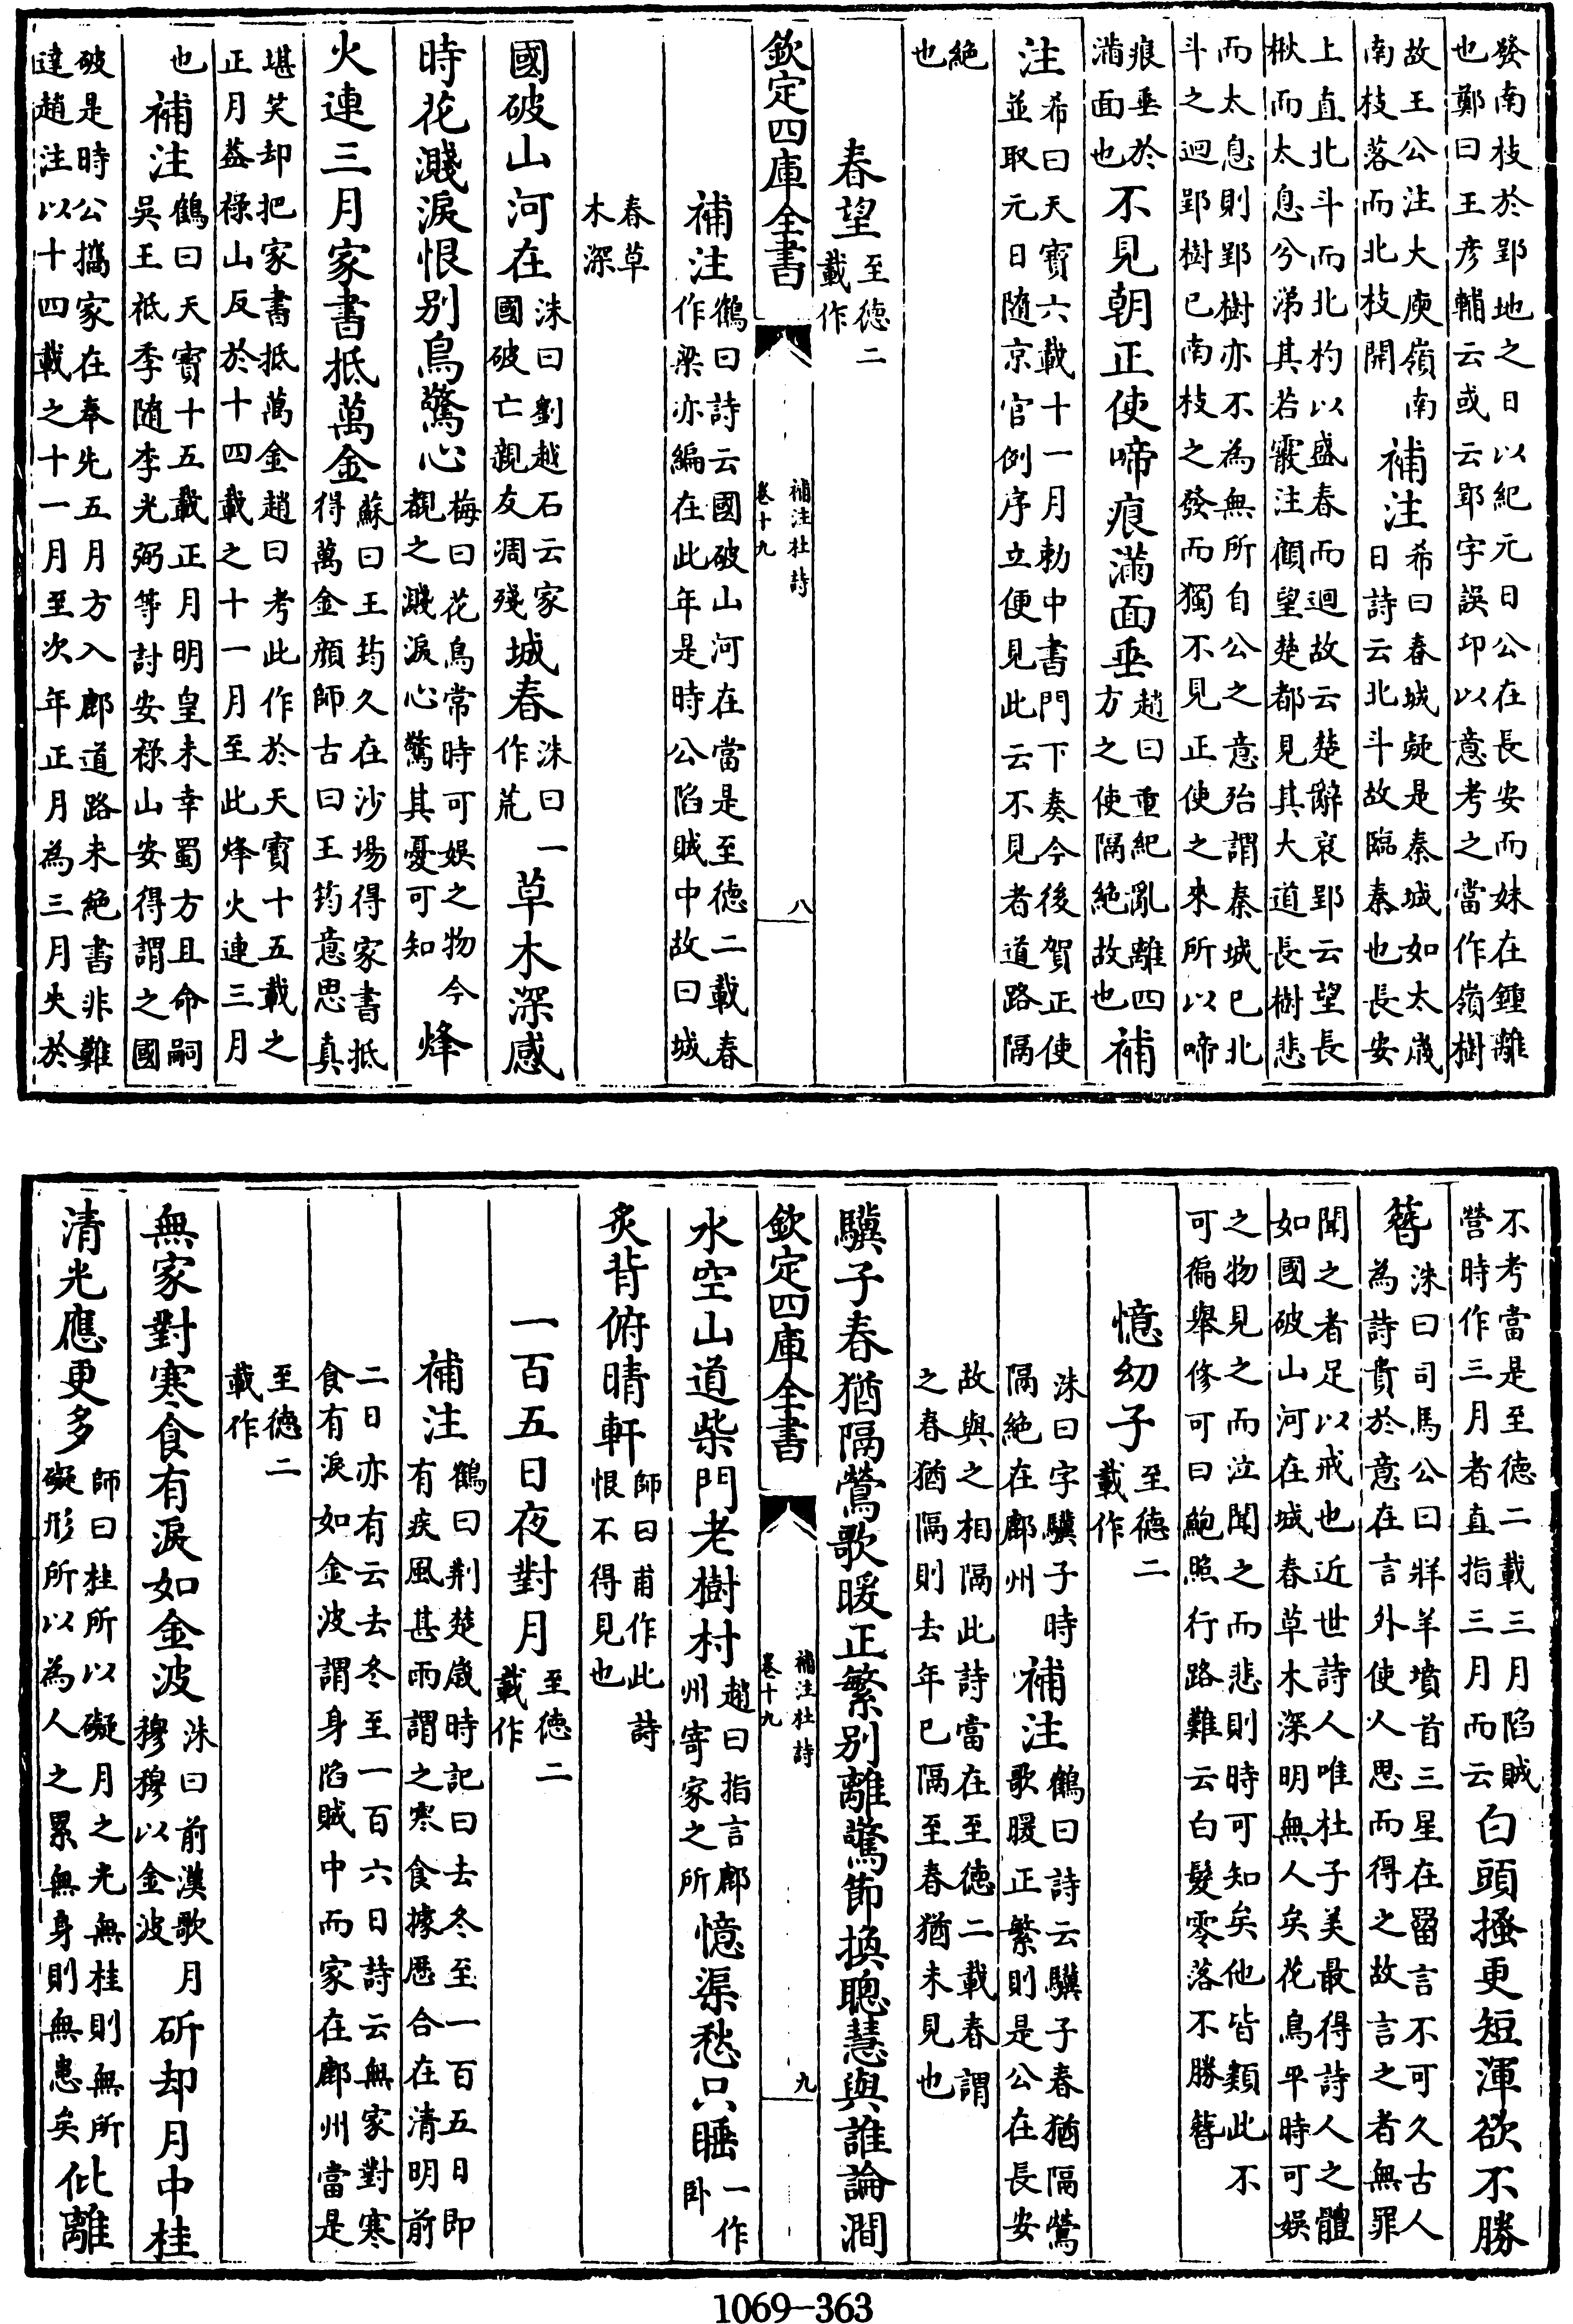 發南枝於郢地之日以紀元日公在長安而妹在鍾離
也鄭曰王彦輔云或云郢字誤印以意考之當作嶺樹
故王公注大庾嶺南
南枝落而北枝開
補注
希曰春城疑是秦城如太歲
日詩云北斗故臨秦也長安
上直北斗而北杓以盛春而迴故云楚辭哀郢云望長
楸而太息兮涕其若霰注顧望楚都見其大道長樹悲
而太息則郢樹亦不為無所自公之意殆謂秦城已北
斗之迴郢樹已南枝之發而獨不見正使之來所以啼
痕垂於
滿面也
不見朝正使啼痕滿面垂
趙曰重紀亂離四
方之使隔絶故也
補
注
希曰天寶六載十一月勅中書門下奏今後賀正使
並取元日隨京官例序立便見此云不見者道路隔
絶
也
春望
至徳二
載作
欽定四庫全書
補注杜詩
卷十九
八
補注
鶴曰詩云國破山河在當是至徳二載春
作梁亦編在此年是時公陷賊中故曰城
春草
木深
國破山河在
洙曰劉越石云家
國破亡親友凋殘
城春
洙曰一
作荒
草木深感
時花濺淚恨别鳥驚心
梅曰花鳥常時可娛之物今
覩之濺淚心驚其憂可知
烽
火連三月家書抵萬金
蘇曰王筠久在沙塲得家書抵
得萬金顔師古曰王筠意思真
堪笑却把家書抵萬金趙曰考此作於天寳十五載之
正月葢祿山反於十四載之十一月至此烽火連三月
也
補注
鶴曰天寳十五載正月明皇未幸蜀方且命嗣
吳王祗季随李光弼等討安祿山安得謂之國
破是時公擕家在奉先五月方入鄜道路未絶書非難
達趙注以十四載之十一月至次年正月為三月失於
不考當是至徳二載三月陷賊
營時作三月者直指三月而云
白頭搔更短渾欲不勝
簪
洙曰司馬公曰牂羊墳首三星在罶言不可久古人
為詩貴於意在言外使人思而得之故言之者無罪
聞之者足以戒也近世詩人唯杜子美最得詩人之體
如國破山河在城春草木深明無人矣花鳥平時可娛
之物見之而泣聞之而悲則時可知矣他皆類此不
可徧舉修可曰鮑照行路難云白髮零落不勝簪
憶幼子
至徳二
載作
洙曰字驥子時
隔絶在鄜州
補注
鶴曰詩云驥子春猶隔鶯
歌暖正繁則是公在長安
故與之相隔此詩當在至徳二載春謂
之春猶隔則去年已隔至春猶未見也
驥子春猶隔鶯歌暖正繁别離驚節換聰慧與誰論澗
欽定四庫全書
補注杜詩
卷十九
九
水空山道柴門老樹村
趙曰指言鄜
州寄家之所
憶渠愁只睡
一作
卧
炙背俯晴軒
師曰甫作此詩
恨不得見也
一百五日夜對月
至徳二
載作
補注
鶴曰荆楚歲時記曰去冬至一百五日即
有疾風甚雨謂之寒食據厯合在清明前
二日亦有云去冬至一百六日詩云無家對寒
食有淚如金波謂身陷賊中而家在鄜州當是
至徳二
載作
無家對寒食有淚如金波
洙曰前漢歌月
穆穆以金波
斫却月中桂
清光應更多
師曰桂所以礙月之光無桂則無所
礙形所以為人之累無身則無患矣
仳離
1069-363